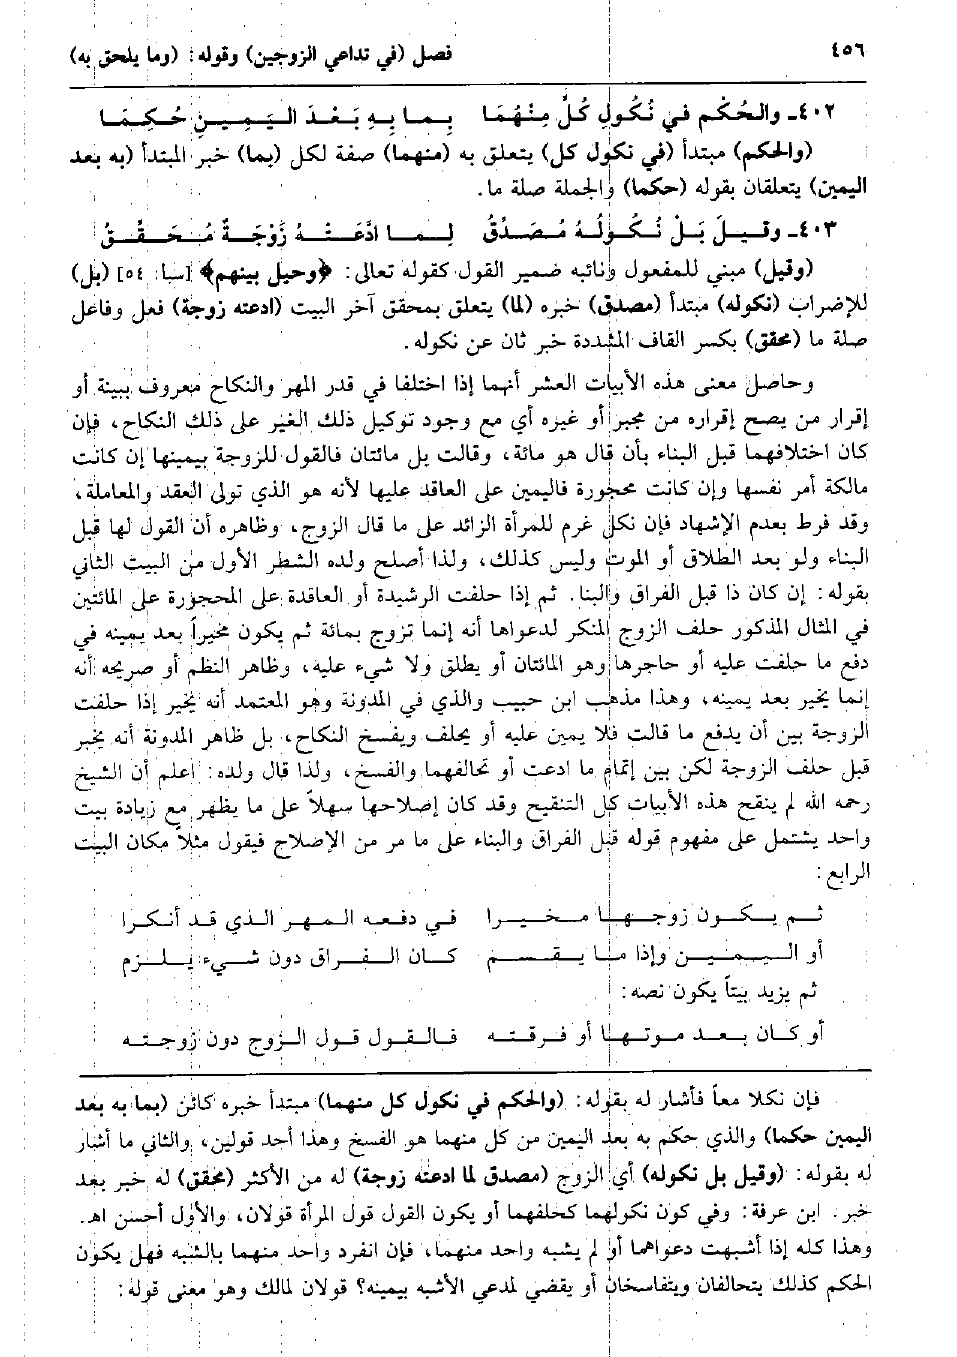 ٤٥٦ فصل (في تداعي الزوجين) وقوله: (وما يلحق به)
٤٠٢ـ والحُكْم في نُكُولِ كُلّ مِنْهُمَا بِمـا بِهِ بَعْدَ الـيَـمِـينِ حُـكِـمَـا
(والحكم) مبتدأ (في نكول كل) يتعلق به (منهما) صفة لكل (بما) خبر المبتدأ (به بعد
اليمين) يتعلقان بقوله (حكما) والجملة صلة ما.
٤٠٣ـ وقـيـلَ بَـلْ نُـكُـولُـهُ مُـصَـدِّقُ لِـمـا ادَّعَـتْـهُ زَوْجَـةٌ مُـحَـقِّـقُ
(وقيل) مبني للمفعول ونائبه ضمير القول كقوله تعالى: ﴿وحيل بينهم﴾ [سبا: ٥٤] (بل)
للإضراب (نكوله) مبتدأ (مصدق) خبره (لما) يتعلق بمحقق آخر البيت (ادعته زوجة) فعل وفاعل
صلة ما (محقق) بكسر القاف المشددة خبر ثان عن نكوله.
وحاصل معنى هذه الأبيات العشر أنهما إذا اختلفا في قدر المهر والنكاح معروف ببينة أو
إقرار من يصح إقراره من مجبر أو غيره أي مع وجود توكيل ذلك الغير على ذلك النكاح، فإن
كان اختلافهما قبل البناء بأن قال هو مائة، وقالت بل مائتان فالقول للزوجة بيمينها إن كانت
مالكة أمر نفسها وإن كانت محجورة فاليمين على العاقد عليها لأنه هو الذي تولى العقد والمعاملة،
وقد فرط بعدم الإشهاد فإن نكل غرم للمرأة الزائد على ما قال الزوج، وظاهره أن القول لها قبل
البناء ولو بعد الطلاق أو الموت وليس كذلك، ولذا أصلح ولده الشطر الأول من البيت الثاني
بقوله: إن كان ذا قبل الفراق والبنا. ثم إذا حلفت الرشيدة أو العاقدة على المحجورة على المائتين
في المثال المذكور حلف الزوج المنكر لدعواها أنه إنما تزوج بمائة ثم يكون مخيراً بعد يمينه في
دفع ما حلفت عليه أو حاجرها وهو المائتان أو يطلق ولا شيء عليه، وظاهر النظم أو صريحه أنه
إنما يخير بعد يمينه، وهذا مذهب ابن حبيب والذي في المدونة وهو المعتمد أنه يخير إذا حلفت
الزوجة بين أن يدفع ما قالت فلا يمين عليه أو يحلف ويفسخ النكاح، بل ظاهر المدونة أنه يخير
قبل حلف الزوجة لكن بين إتمام ما ادعت أو تحالفهما والفسخ، ولذا قال ولده: اعلم أن الشيخ
رحمه الله لم ينقح هذه الأبيات كل التنقيح وقد كان إصلاحها سهلاً على ما يظهر مع زيادة بيت
واحد يشتمل على مفهوم قوله قبل الفراق والبناء على ما مر من الإصلاح فيقول مثلاً مكان البيت
الرابع:
ثـم يـكـون زوجـهـا مـخـيـرا فـي دفـعـه الـمـهـر الـذي قـد أنـكـرا
أو الـيـمـيـن وإذا مـا يـقـسـم كـان الـفـراق دون شـيء يـلـزم
ثم يزيد بيتاً يكون نصه:
أو كـان بـعـد مـوتـهـا أو فـرقـتـه فـالـقـول قـول الـزوج دون زوجـتـه
فإن نكلا معاً فأشار له بقوله: (والحكم في نكول كل منهما) مبتدأ خبره كائن (بما به بعد
اليمين حكما) والذي حكم به بعد اليمين من كل منهما هو الفسخ وهذا أحد قولين، والثاني ما أشار
له بقوله: (وقيل بل نكوله) أي الزوج (مصدق لما ادعته زوجة) له من الأكثر (محقق) له خبر بعد
خبر. ابن عرفة: وفي كون نكولهما كحلفهما أو يكون القول قول المرأة قولان، والأول أحسن اهـ.
وهذا كله إذا أشبهت دعواهما أو لم يشبه واحد منهما، فإن انفرد واحد منهما بالشبه فهل يكون
الحكم كذلك يتحالفان ويتفاسخان أو يقضي لمدعي الأشبه بيمينه؟ قولان لمالك وهو معنى قوله: